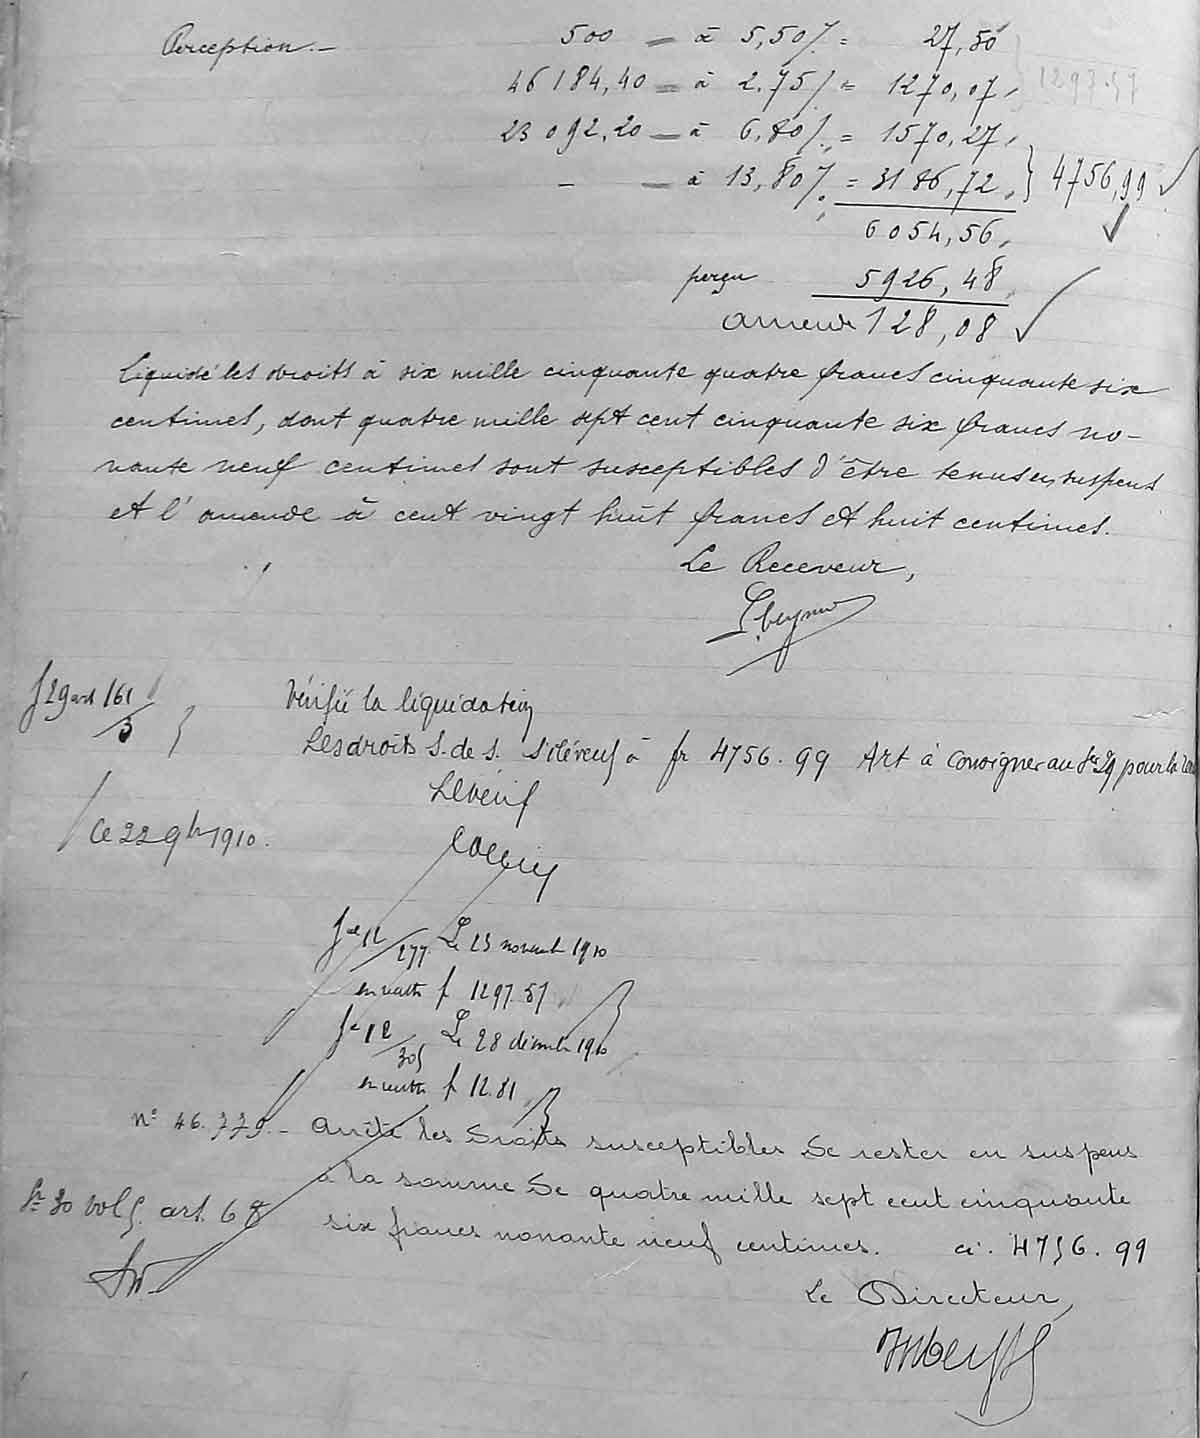 Perception.— 500 — à 5,50% = 27,50
1297.57
46184,40 = à 2.75% = 1270,07
23092,20 — à 6,80% = 1570,27
- — à 13,80% = 3186,72 } 4756,99
6054,56
perçu 5926,48
amende 128,08
Liquidé les droits à six mille cinquante quatre francs cinquante six
centimes, dont quatre mille sept cent cinquante six francs no-
nante neuf centimes sont susceptibles d'être tenus en suspens
et l'amende à cent vingt huit francs et huit centimes.
Le Receveur,
f 29 art 161
3
Vérifié la liquidation
Les droits S. de S. s'élèvent à fr 4756.99 Art à consigner au Ser 29 pour la
Le vérif
Ce 22 9bre 1910.
12
277 Le 23 novembre 1910
en recette f 1297.57
12
305 Le 28 décembre 1910
en recette f 12.81
N° 46.779.- Arrêté les Droits susceptibles de rester en suspens
à la somme de quatre mille sept cent cinquante
Sr 30 vol 5. art. 68
six francs nonante neuf centimes. ci. 4756.99
Le Directeur,